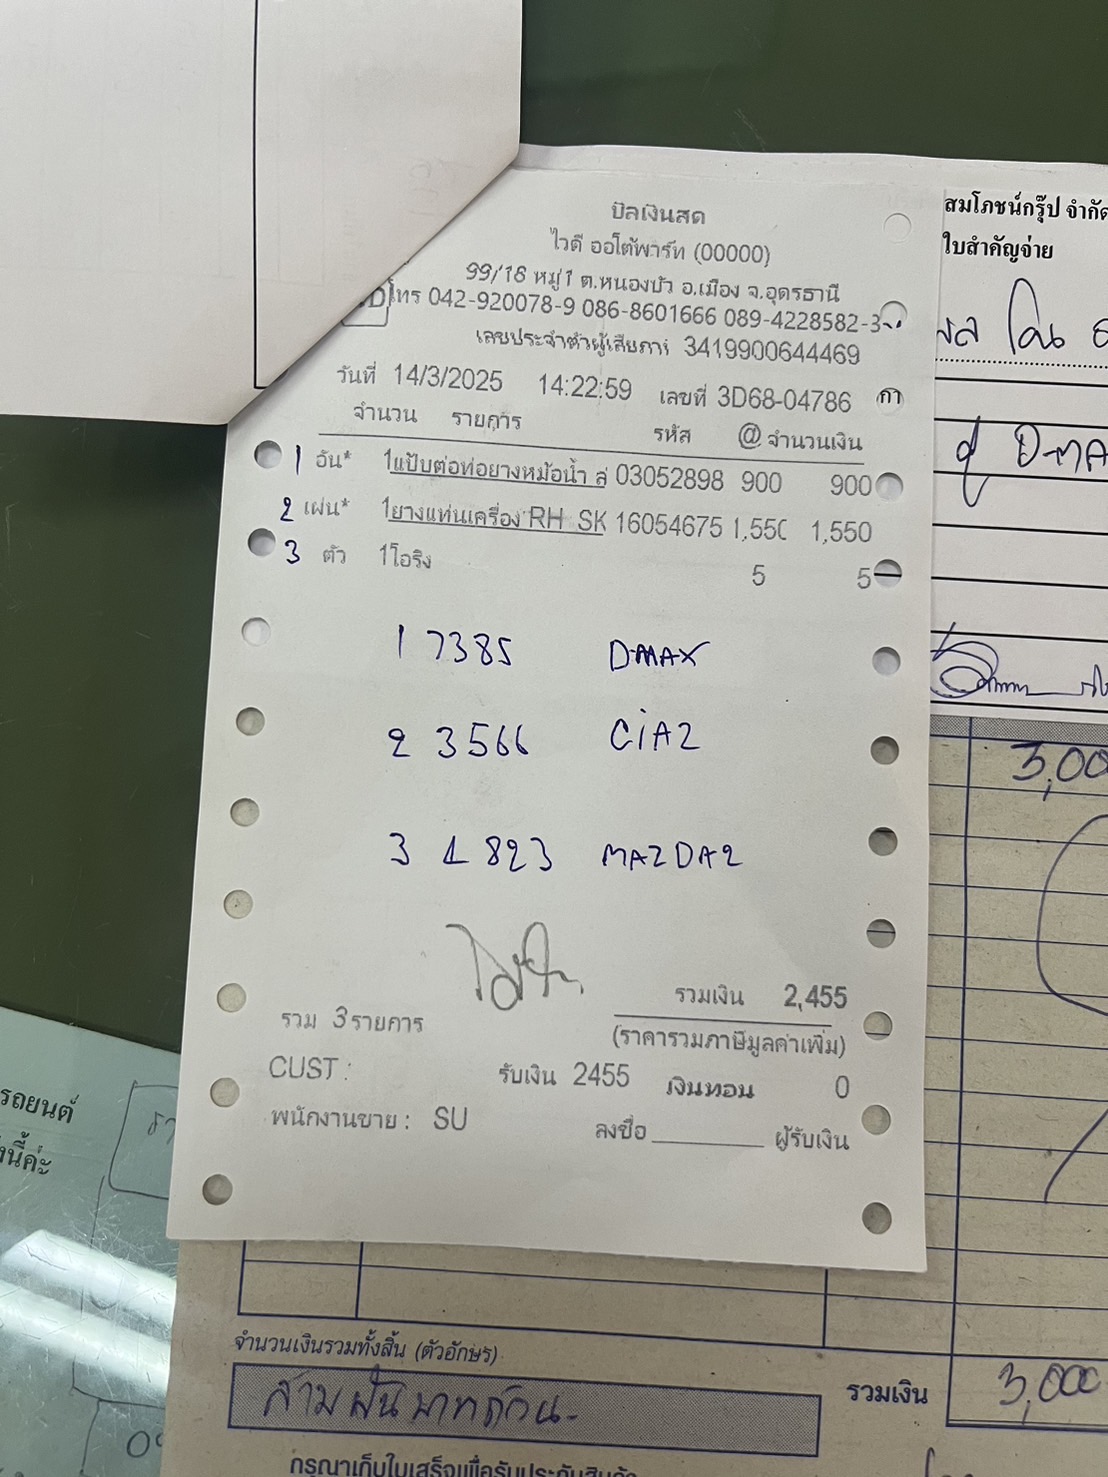 บิลเงินสด
ไวดี ออโต้พาร์ท (00000)
99/18 หมู่1 ต.หนองบัว อ.เมือง จ.อุดรธานี
โทร 042-920078-9 086-8601666 089-4228582-3
เลขประจำตัวผู้เสียภาษี 3419900644469
วันที่ 14/3/2025 14:22:59 เลขที่ 3D68-04786
จำนวน รายการ รหัส @ จำนวนเงิน
1 อัน* 1แป๊บต่อท่อยางหม้อน้ำ 03052898 900 900
2 เผ่น* 1ยางแท่นเครื่อง RH SK 16054675 1,550 1,550
3 ตัว 1โอริง 5 5
1 7385 DMAX
2 3566 CIAZ
3 1823 MAZDA2
รวมเงิน 2,455
รวม 3รายการ (ราคารวมภาษีมูลค่าเพิ่ม)
CUST : รับเงิน 2455 เงินทอน 0
พนักงานขาย : SU ลงชื่อ ผู้รับเงิน
สมโภชน์กรุ๊ป จำกัด
ใบสำคัญจ่าย
D-MA
3,00
รถยนต์
นี้ค่ะ
จำนวนเงินรวมทั้งสิ้น (ตัวอักษร)
สามพันบาทถ้วน-
รวมเงิน 3,000
กรุณาเก็บใบเสร็จเพื่อรับประกันสินค้า